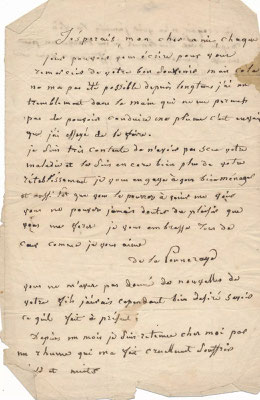 J'esperais mon cher amie chaque
jour pouvoir vous écrire pour vous
remercier de votre bon souvenir mon cela
ne ma pas été possible depuis longtems j'ai un
tremblement dans la main qui ne me permet
pas de pouvoir conduire une plume c'est
que j'ai essayé de le faire.
je suis très contente de n'avoir pas scu votre
maladie et le suis encore bien plus de votre
rétablissement je vous engage à vous bien menager
et aussi tôt que vous le pourrez à venir me voir
vous ne pouvez jamais douter du plaisir que
vous me ferez je vous embrasse
comme je vous aime
de la
vous ne m'avez pas donné de nouvelles de
votre fils j'avais cependant bien desiré savoir
ce qu'il fait à présent
Depuis un mois je suis retenue chez moi par
un rhume qui ma fait cruellement souffrir
et nuit